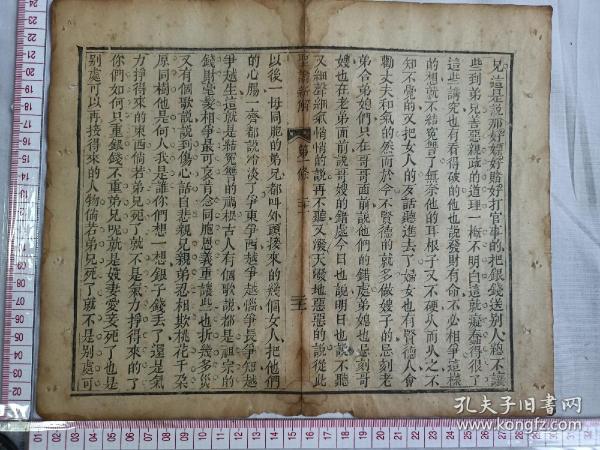 兄這是說那好嫖好賭好打官事的把銀錢送別人穩不讓
些到弟兄善惡親疏的道理一槪不明白這就癡蠢得很了
這些講究也有看得破的他也說發財有命不必相爭這樣
的想就不結冤讐了無奈他的耳根子又不硬久而久之不
知不覺的又把女人的友話聽進去了婦女也有賢德人會
勸丈夫和氣的然而於今不賢德的就多做嫂子的忌刻老
弟合弟媳們只在哥哥面前說他們的錯處弟媳也忌刻哥
嫂也在老弟面前說哥嫂的錯處今日也說明日也說不聽
又細聲細氣悄悄的說再不聽又潑天潑地惡惡的說從此
聖諭新解 第一條
以後一母同胞的弟兄都叫外頭接來的幾個女人把他們
的心腸一齊都說冷淡了爭東爭西越爭越惱爭長爭短越
爭越生這就是結冤讐的禍根古人有個歌說都是祖宗的
錢財毫髮相爭最可哀肯念同胞恩義重讓些也折幾多災
又有個歌說說到傷心話自悲親兄親弟忍相欺桃花千朶
原同樹他是何人我是誰你們想一想銀子錢丟了還是氣
力掙得來的東西倘若弟兄死了就不是氣力掙得來的了
你們如何只重銀錢不重弟兄呢就是嬌妻愛妾死了也是
別處可以再接得來的人物倘若弟兄死了就不是別處可
孔夫子旧书网
www.kongfz.com